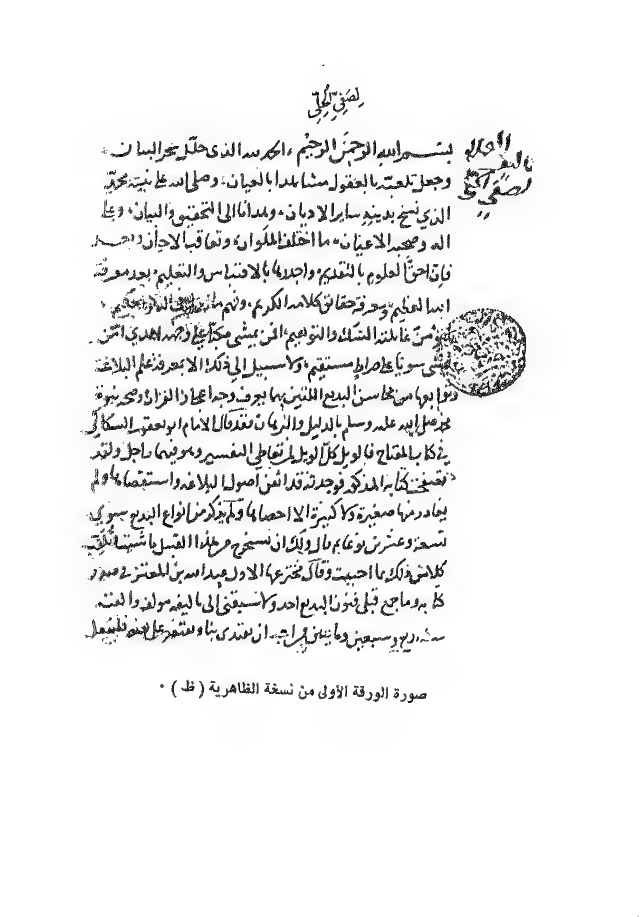 لصفي الحلي
بسم الله الرحمن الرحيم، الحمد لله الذي حلل سحر البيان
وجعل تلعبه بالعقول مشاهدا بالعيان، وصلى الله على نبيه محمد
الذي نسخ بدينه ساير الاديان، وهدانا الى التحقيق والبيان، وعلى
اله وصحبه الاعيان، ما اختلف الملوان، وتعاقب الاحيان وبعد
فان احق العلوم بالتقديم، واجدرها بالاقتباس والتعليم، بعد معرفة
الله العظيم، ومعرفة حقائق كلامه الكريم، وفهم ما
لتؤمن غائلتا الشك والتوهيم، افمن يمشي مكبا على وجهه اهدى امن
يمشي سويا على صراط مستقيم، ولا سبيل الى ذلك الا بمعرفة علم البلاغة
وتوابعها من محاسن البديع اللتين بهما يعرف وجه اعجاز القران وصحة نبوة
محمد صلى الله عليه وسلم بالدليل والبرهان فقد قال الامام ابو يعقوب السكاكي
في كتاب المفتاح فالويل كل الويل لمن تعاطى التفسير وهو فيهما راجل ولقد
تصفحت كتابه المذكور فوجدته قد اتقن اصول البلاغه واستقصاها ولم
يغادر منها صغيرة ولا كبيرة الا احصاها ولم يذكر من انواع البديع سوى
تسعة وعشرين نوعا ثم قال ولك ان تستخرج من هذا القبيل ما شئت وتلقب
كلا من ذلك بما احببت وقال مخترعها الاول عبد الله بن المعتز في صدر
كتابه وما جمع قبلي فنون البديع احد ولا سبقني الى تاليفه مولف والفته
سنة اربع وسبعين وماتين فمن احب ان يقتدي بنا ويقتصر على هذه فليفعل
صورة الورقة الأولى من نسخة الظاهرية ( ظ ) .